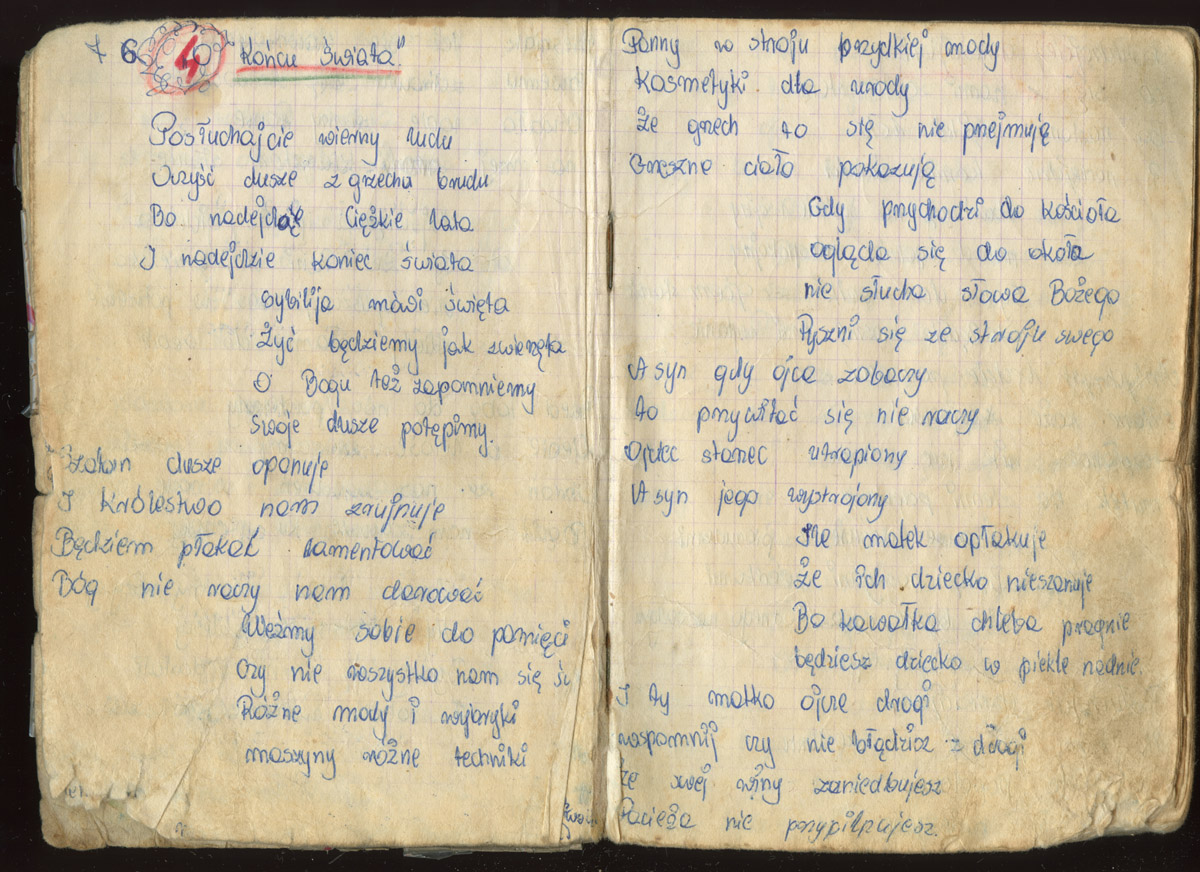 76 40 Końcu Świata"
Posłuchajcie wierny ludu
Oczyść dusze z grzechu brudu
Bo nadejdzie Ciężkie lata
I nadejdzie koniec świata
Sybilija mówi święta
Żyć będziemy jak zwierzęta
O Bogu też zapomniemy
Swoje dusze potępimy.
Szatan dusze opanuje
I Królestwo nam zrujnuje
Będziem płakać lamentować
Bóg nie raczy nam darować
Weźmy sobie do pamięci
Czy nie wszystko nam się
Różne mody i wybryki
maszyny różne techniki
Panny w stroju przydkiej mody
Kosmetyki dla urody
Że grzech to się nie przejmują
Grzeszne ciało pokazują
Gdy przychodzi do kościoła
ogląda się do okoła
nie słucha słowa Bożego
Pyszni się ze stroju swego
A syn gdy ojca zobaczy
to przywitać się nie raczy
Ojciec starzec utrapiony
A syn jego wystrojony
Ile matek opłakuje
Że ich dziecko nieszanuje
Bo kawałka chleba pragnie
będziesz dziecko w piekle nadnie
I ty matko ojcze drogi
wspomnij czy nie błądzisz z drogi
że swej winy zaniedbujesz
Pacieża nie przypilnujesz.